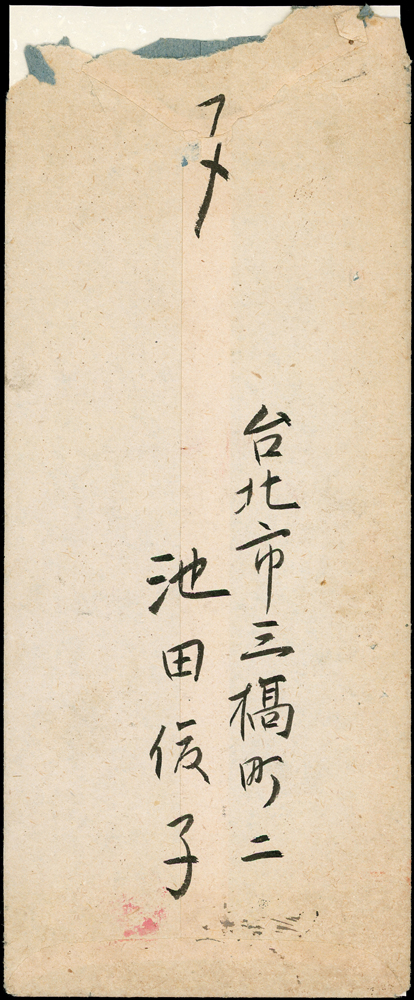 〆
台北市三橋町二
池田俊子